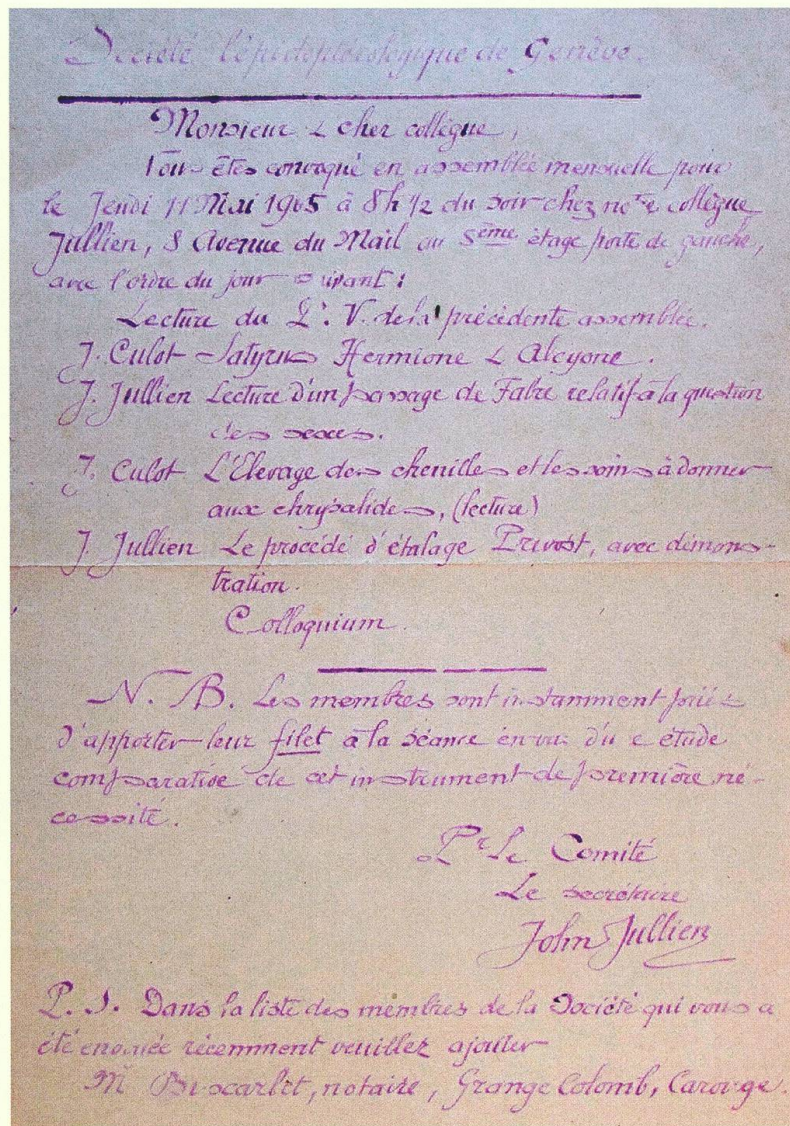 Société lépidoptérologique de Genève.
Monsieur & cher collègue,
Vous êtes convoqué en assemblée mensuelle pour
le Jeudi 11 Mai 1905 à 8h 1/2 du soir chez notre collègue
Jullien, 8 Avenue du Mail au 5ème étage porte de gauche,
avec l'ordre du jour suivant :
Lecture du P. V. de la précédente assemblée.
J. Culot Satyrus Hermione & Alcyone.
J. Jullien Lecture d'un passage de Fabre relatif à la question
des sexes.
J. Culot L'Elevage des chenilles et les soins à donner
aux chrysalides, (lecture)
J. Jullien Le procédé d'étalage Prevost, avec démons-
tration.
Colloquium.
N. B. Les membres sont instamment priés
d'apporter leur filet à la séance en vue d'une étude
comparative de cet instrument de première né-
cessité.
Pr Le Comité
Le secrétaire
John Jullien
P. S. Dans la liste des membres de la Société qui vous a
été envoyée récemment veuillez ajouter
M notaire, Grange Colomb, Carouge.